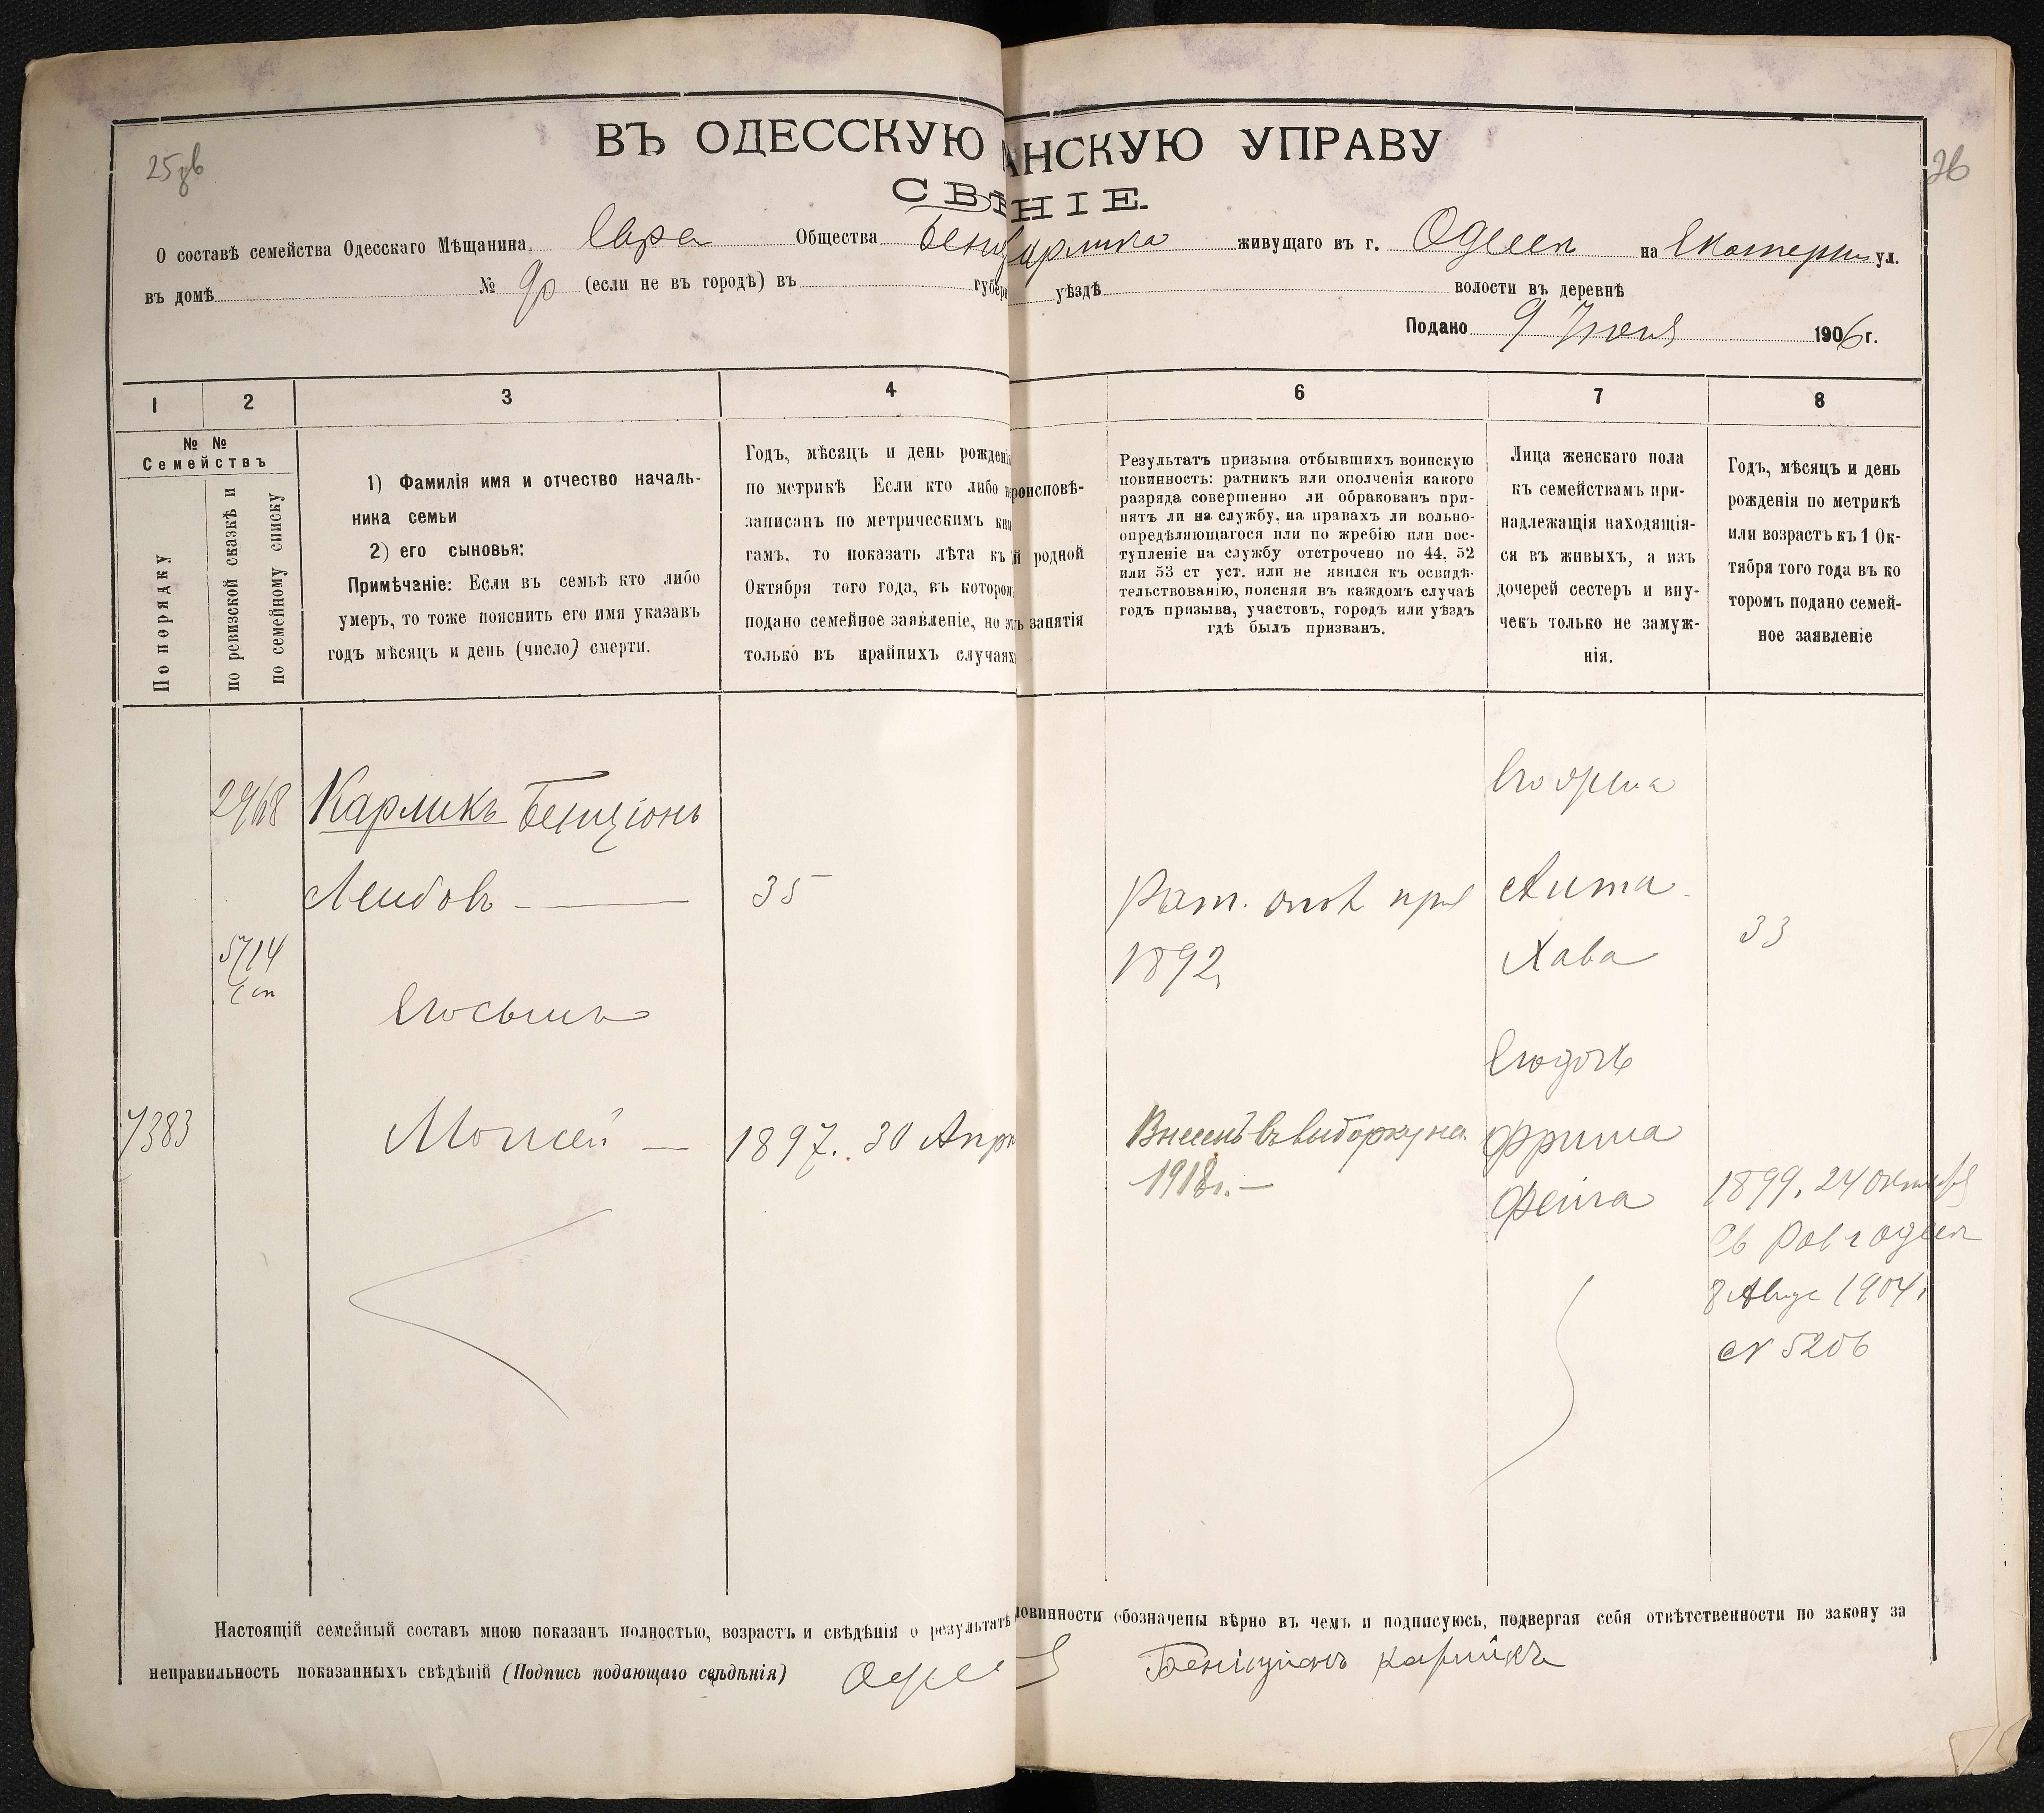 ВЪ ОДЕССКУЮ АНСКУЮ УПРАВУ
26
СВѢ НІЕ.
О составѣ семейства Одесскаго Мѣщанина Общества живущаго въ г. Одесса на Екатерин ул.
въ домѣ № 90 (если не въ городѣ) въ губерн уѣздѣ волости въ деревнѣ
Подано 9 1906 г.
1 2 3 4 6 7 8
№ №
Семействъ
По порядку
по ревизской сказкѣ и
по семейному списку
1) Фамилія имя и отчество началь-
ника семьи
2) его сыновья:
Примѣчаніе: Если въ семьѣ кто либо
умеръ, то тоже пояснить его имя указавъ
годъ мѣсяцъ и день (число) смерти.
Годъ, мѣсяцъ и день рожденія
по метрикѣ Если кто либо не
записанъ по метрическимъ кни
гамъ, то показать лѣта къ
Октября того года, въ котором
подано семейное заявленіе, но эт
только въ крайнихъ случаяхъ
роисповѣ-
й родной
ъ занятія
Результатъ призыва отбывшихъ воинскую
повинность: ратникъ или ополченія какого
разряда совершенно ли обракованъ при-
нятъ ли на службу, на правахъ ли вольно-
опредѣляющагося или по жребію или пос-
тупленіе на службу отстрочено по 44, 52
или 53 ст уст. или не явился къ освидѣ-
тельствованію, поясняя въ каждомъ случаѣ
годъ призыва, участовъ, городъ или уѣздъ
гдѣ былъ призванъ.
Лица женскаго пола
къ семействамъ при-
надлежащія находящія-
ся въ живыхъ, а изъ
дочерей сестеръ и вну-
чекъ только не замуж-
нія.
Годъ, мѣсяцъ и день
рожденія по метрикѣ
или возрастъ къ 1 Ок-
тября того года въ ко
торомъ подано семей-
ное заявленіе
2968 Карликъ Бенціонъ
Лейбовъ — 35
5714
Его сынъ
7383 Моисей — 1897. 30 Апр
Рат. опол
1892
Внесенъ въ выборку на
1918г. —
Его жена
Хава
33
Его дочь
Фейга
1899. 24 Октября
8 Авгус 1904
№ 5206
Настоящій семейный составъ мною показанъ полностью, возрастъ и свѣдѣнія о результатѣ повинности обозначены вѣрно въ чемъ и подписуюсь, подвергая себя отвѣтственности по закону за
неправильность показанныхъ свѣдѣній (Подпись подающаго свѣдѣнія) Бенціонъ Карликъ